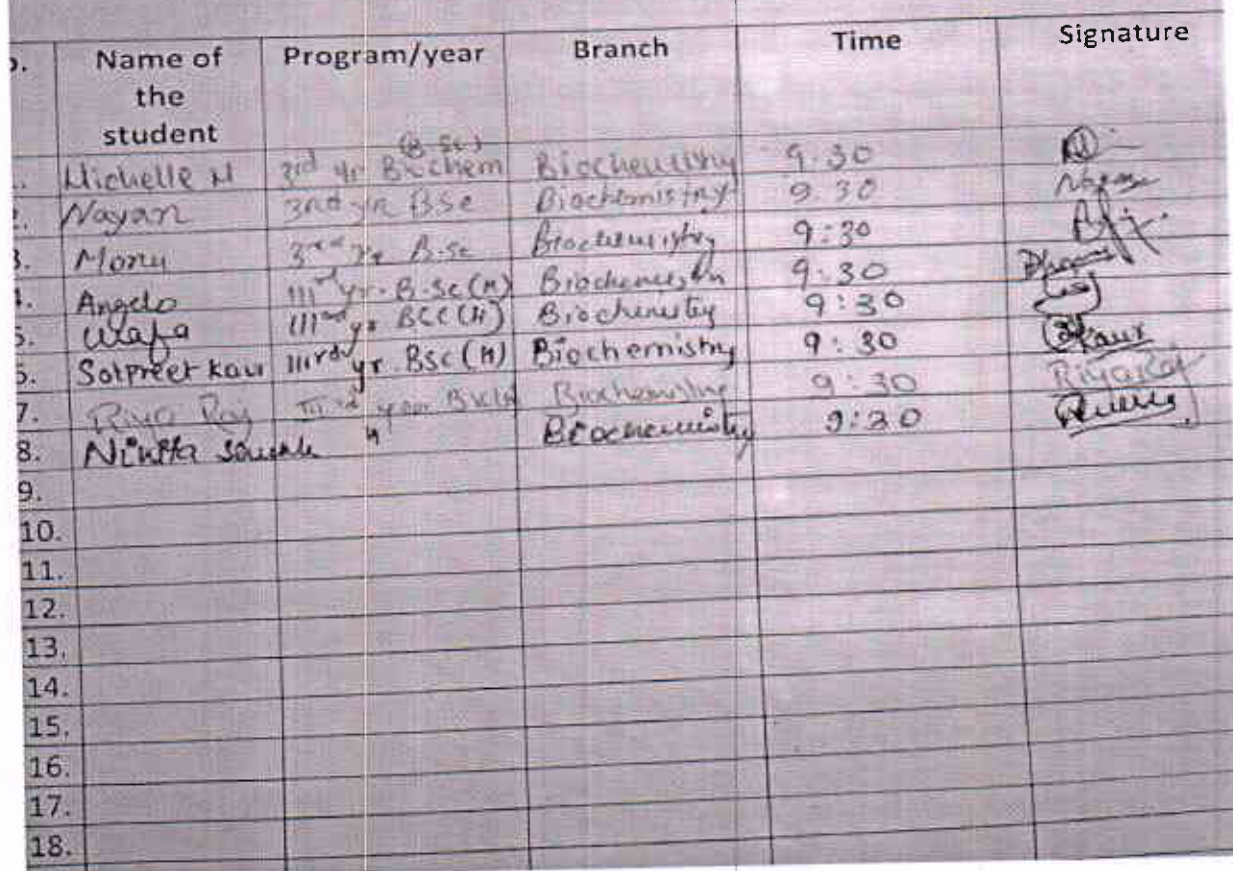 Name of the student Program/year Branch Time Signature
1. Michelle M 3rd yr Biochem (B.Sc) Biochemistry 9.30
2. Nayan 3rd yr BSc Biochemistry 9.30 Nayan
3. Monu 3rd yr B.Sc Biochemistry 9:30
4. Angelo IIIrd yr. B.Sc(H) Biochemistry 9:30
5. Wafa IIIrd yr BSC(H) Biochemistry 9:30
6. Satpreet kaur IIIrd yr. BSc (H) Biochemistry 9:30 Kaur
7. Riya Raj IIIrd year Biochemistry 9:30 Riya Raj
8. Nikita Biochemistry 9:30
9.
10.
11.
12.
13.
14.
15.
16.
17.
18.